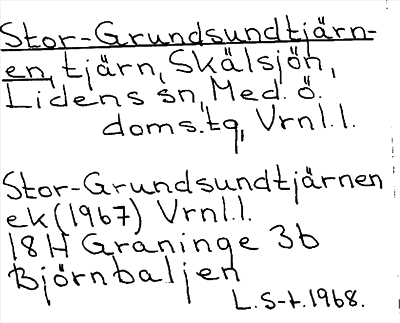 Stor-Grundsundtjärn-
en, tjärn, Skälsjön,
Lidens sn, Med. ö.
doms.tg, Vrnl.l.
Stor-Grundsundtjärnen
ek(1967) Vrnl.l.
18H Graninge 3b
Björnbaljen
L.S-t.1968.